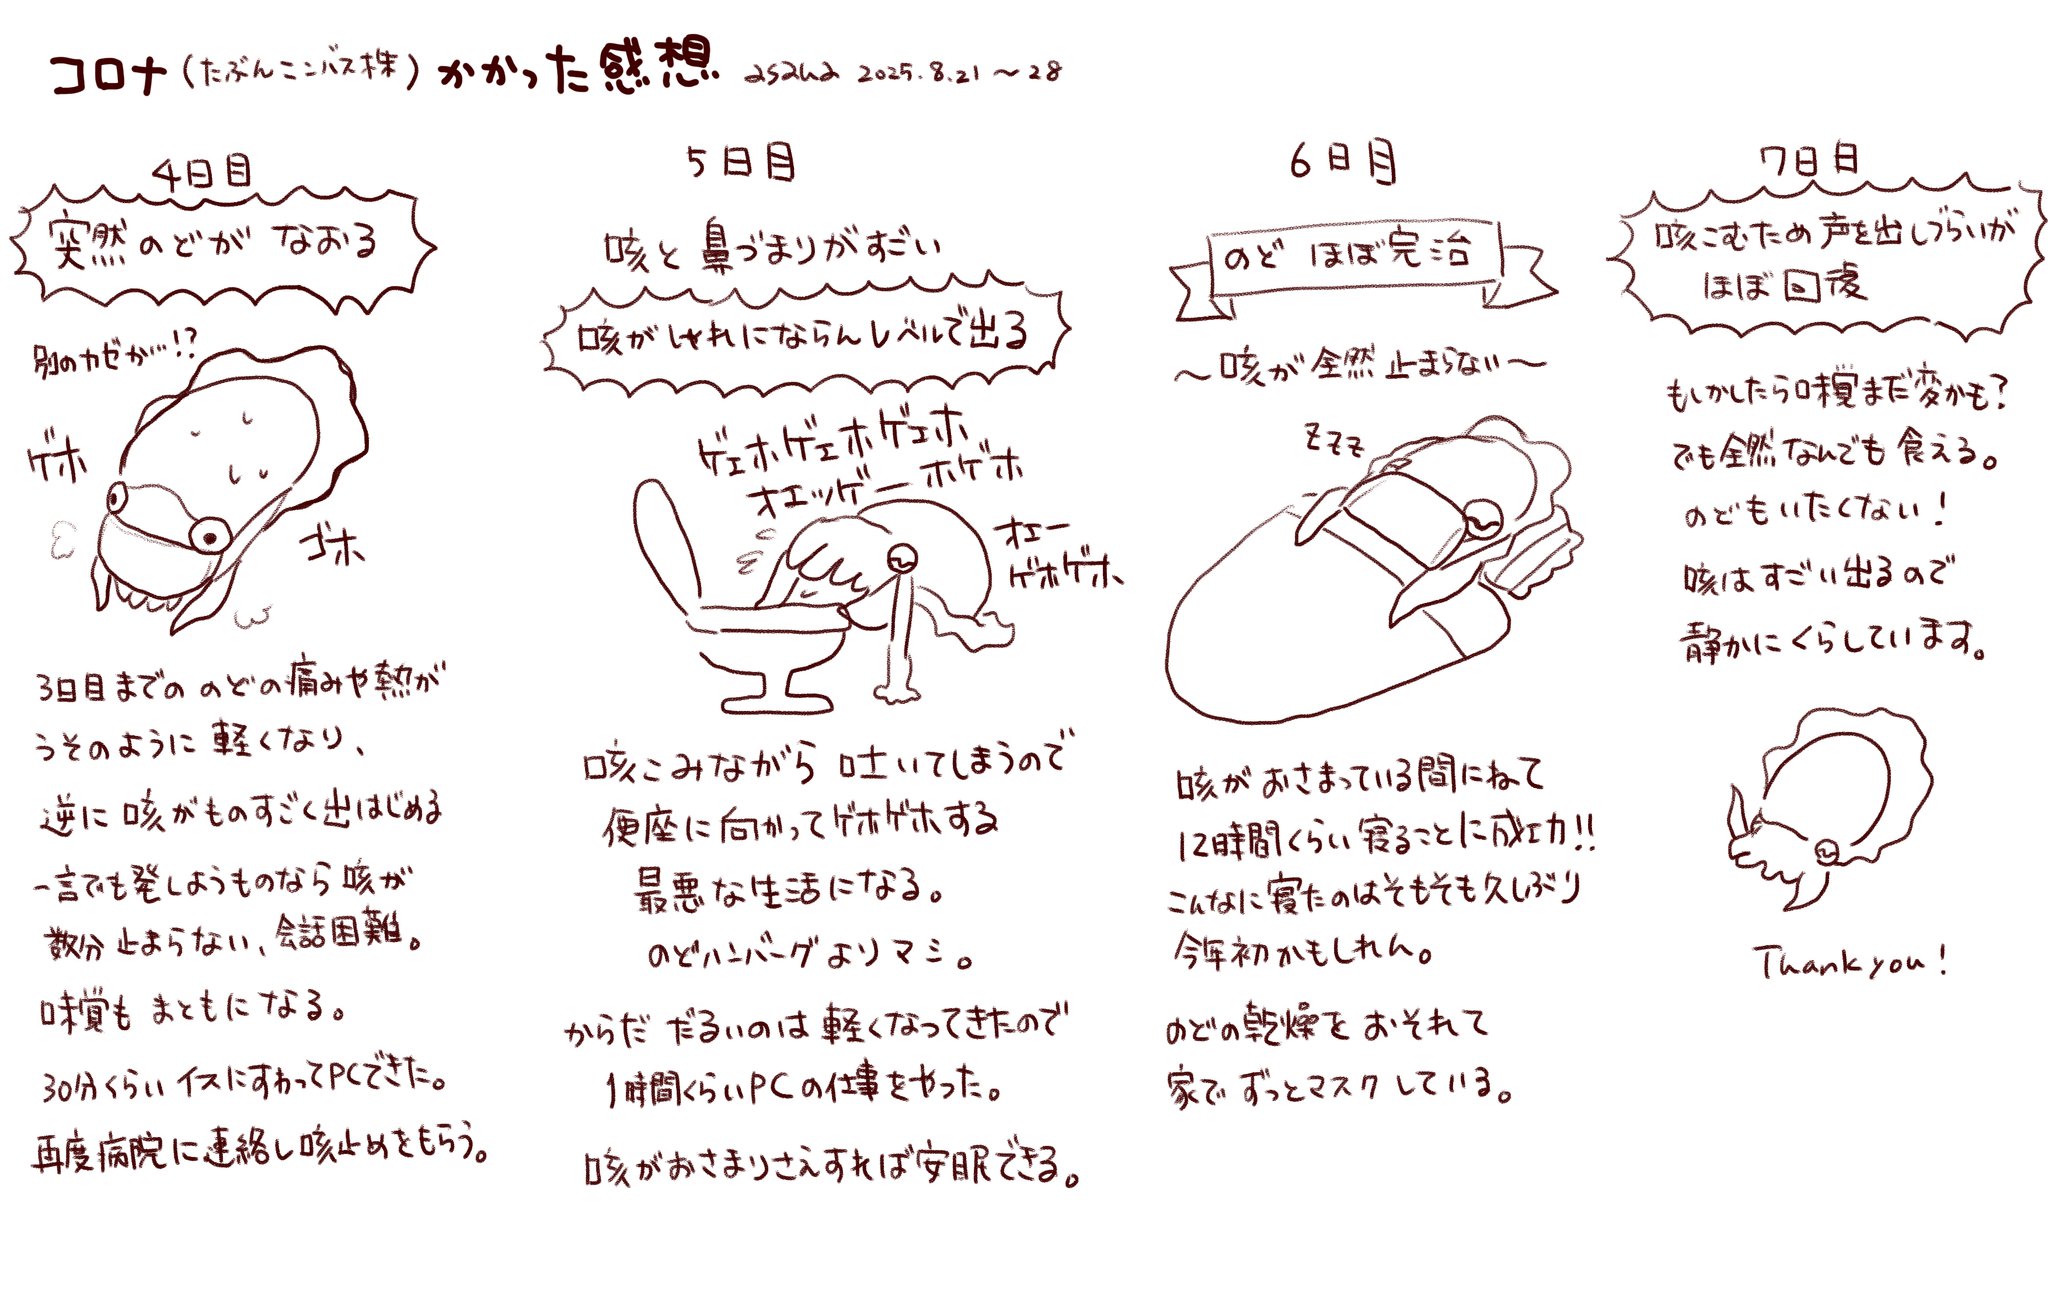 コロナ(たぶんニンバス株)かかった感想 asaua 2025.8.21〜28
4日目
突然のどが なおる
別のカゼか…!?
ゲホ
ゴホ
3日目までの のどの痛みや熱が
うそのように 軽くなり、
逆に 咳がものすごく出はじめる
一言でも発しようものなら 咳が
数分 止まらない、会話困難。
味覚も まともになる。
30分くらい イスにすわってPCできた。
再度病院に連絡し咳止めをもらう。
5日目
咳と鼻づまりがすごい
咳がしゃれにならんレベルで出る
ゲェホゲェホゲェホ
オエッゲーホゲホ
オエー
ゲホゲホ
咳こみながら 吐いてしまうので
便座に向かってゲホゲホする
最悪な生活になる。
のどハンバーグよりマシ。
からだ だるいのは軽くなってきたので
1時間くらいPCの仕事をやった。
咳がおさまりさえすれば安眠できる。
6日目
のど ほぼ完治
〜咳が全然止まらない〜
zzz
咳がおさまっている間にねて
12時間くらい寝ることに成功!!
こんなに寝たのはそもそも久しぶり
今年初かもしれん。
のどの乾燥をおそれて
家でずっとマスクしている。
7日目
咳こむため声を出しづらいが
ほぼ回復
もしかしたら味覚まだ変かも?
でも全然なんでも食える。
のどもいたくない!
咳はすごい出るので
静かにくらしています。
Thank you!